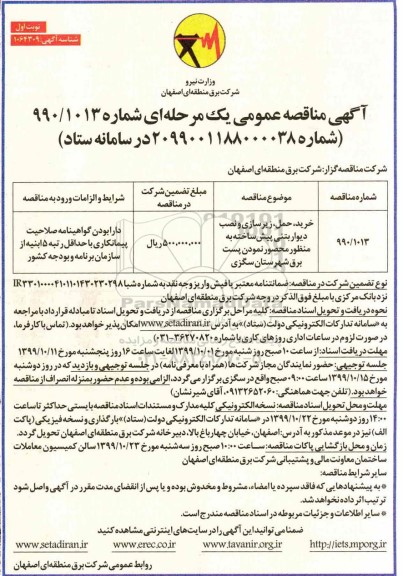 نوبت اول
شناسه آگهی: ۱۰۶۴۳۰۹
وزارت نیرو
شرکت برق منطقه‌ای اصفهان
آگهی مناقصه عمومی یک مرحله‌ای شماره ۹۹۰/۱۰۱۳
(شماره ۲۰۹۹۰۰۱۱۸۸۰۰۰۰۳۸ در سامانه ستاد)
شرکت مناقصه گزار: شرکت برق منطقه‌ای اصفهان
شماره مناقصه	موضوع مناقصه	مبلغ تضمین شرکت در مناقصه	شرایط و الزامات ورود به مناقصه
۹۹۰/۱۰۱۳	خرید، حمل، زیرسازی و نصب دیوار بتنی پیش ساخته به منظور محصور نمودن پست برق شهرستان سگزی	۵۰۰,۰۰۰,۰۰۰ ریال	دارا بودن گواهینامه صلاحیت پیمانکاری با حداقل رتبه ۵ ابنیه از سازمان برنامه و بودجه کشور
نوع تضمین شرکت در مناقصه: ضمانتنامه معتبر یا فیش واریز وجه نقد به شماره شبا
نزد بانک مرکزی با مبلغ فوق الذکر در وجه شرکت برق منطقه‌ای اصفهان
نحوه دریافت و تحویل اسناد مناقصه: کلیه مراحل برگزاری مناقصه از دریافت و تحویل اسناد تا مبادله قرارداد با مراجعه
به «سامانه تدارکات الکترونیکی دولت (ستاد)» به آدرس www.setadiran.ir امکان پذیر خواهد بود. (تماس با کارفرما،
در صورت لزوم در ساعات اداری روزهای کاری با شماره ۳۶۲۷۰۸۲۰-۰۳۱)
مهلت دریافت اسناد: از ساعت ۱۰ صبح روز شنبه مورخ ۱۳۹۹/۱۰/۰۶ لغایت ساعت ۱۶ روز پنجشنبه مورخ ۱۳۹۹/۱۰/۱۱
جلسه توجیهی: حضور نمایندگان مجاز شرکت‌ها (همراه با معرفی نامه) در جلسه توجیهی و بازدید که در روز دوشنبه
مورخ ۱۳۹۹/۱۰/۱۵ ساعت ۰۹:۰۰ صبح واقع در سگزی برگزار می گردد، الزامی بوده و عدم حضور بمنزله انصراف از مناقصه
خواهد بود. (تلفن جهت هماهنگی: ۰۹۱۳۳۶۵۲۰۶۰ آقای شیر نشان)
مهلت و محل تحویل اسناد مناقصه: نسخه الکترونیکی کلیه مدارک و مستندات اسناد مناقصه بایستی حداکثر تا ساعت
۱۴:۰۰ روز دوشنبه مورخ ۱۳۹۹/۱۰/۲۲ در «سامانه تدارکات الکترونیکی دولت (ستاد)» بارگذاری و نسخه فیزیکی (پاکت
الف) نیز در موعد مذکور به آدرس: اصفهان، خیابان چهارباغ بالا، دبیرخانه شرکت برق منطقه‌ای اصفهان تحویل گردد.
زمان و محل بازگشایی پاکات مناقصه: ساعت ۱۰:۰۰ صبح روز سه‌شنبه مورخ ۱۳۹۹/۱۰/۲۳ سالن کمیسیون معاملات
ساختمان معاونت مالی و پشتیبانی شرکت برق منطقه‌ای اصفهان
سایر شرایط مناقصه:
* به پیشنهادهایی که فاقد سپرده یا امضاء، مشروط و مخدوش بوده و یا پس از انقضای مدت مقرر در آگهی واصل شود
ترتیب اثر داده نخواهد شد.
* سایر اطلاعات و جزئیات مربوطه در اسناد مناقصه مندرج است.
ضمنا می توانید این آگهی را در سایت‌های اینترنتی مشاهده کنید
www.setadiran.ir www.erec.co.ir www.tavanir.org.ir http://iets.mporg.ir
روابط عمومی شرکت برق منطقه‌ای اصفهان